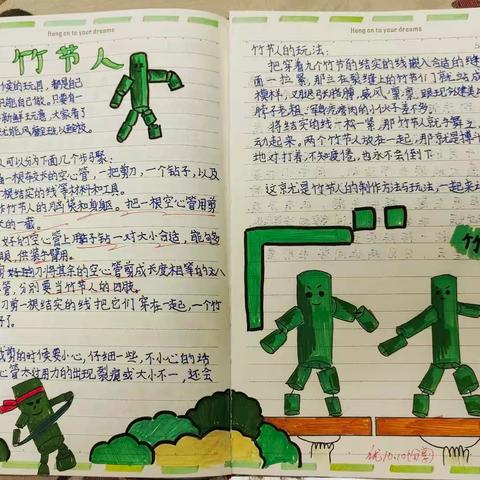 Hang on to your dreams
竹节人
候的玩具，都是自
己做。只要有一
新鲜玩意，大家看了
风靡全班
人可以分为下面几个步骤：
一根较长的空心管，一把剪刀，一个钻子，以及
根结实的线等材料和工具。
作竹节人的脑袋和身躯。把一根空心管用剪
长的一截。
好的空心管上用钻子钻一对大小合适，能够
眼，供装手臂用。
剪刀将其余的空心管剪成长度相等的八
管，分别要当竹节人的四肢。
刀剪一根结实的线把它们穿在一起，一个竹
好了。
裁剪的时候要小心，仔细一些，不小心的话
心管太过用力的出现裂痕或大小不一，还会
Hang on to your dreams
竹节人的玩法：
把穿着九个竹节的结实的线嵌入合适的缝
面一拉紧，那立在裂缝上的竹节们就站成
模样，叉腿张胳膊，威风凛凛，跟
的小伙子差不多。
将结实的线一松一紧，那竹节人就手舞之
动起来，两个竹节人放在一起，那就是搏斗
地对打着，不知疲倦，也永不会倒下。
这就是竹节人的制作方法与玩法，一起来
竹